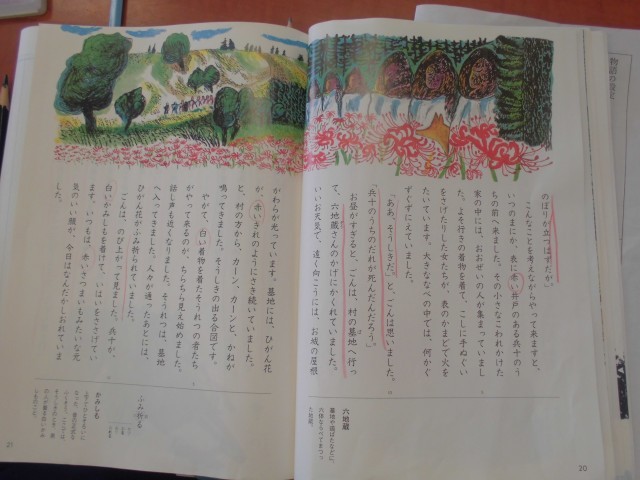 のぼりが立つはずだが。」
こんなことを考えながらやって来ますと、
いつのまにか、表に赤い井戸のある兵十のう
ちの前へ来ました。その小さなこわれかけた
家の中には、おおぜいの人が集まっていまし
た。よそ行きの着物を着て、こしに手ぬぐい
をさげたりした女たちが、表のかまどで火を
たいています。大きななべの中では、何かぐ
ずぐずにえていました。
「ああ、そうしきだ。」と、ごんは思いました。
「兵十のうちのだれが死んだんだろう。」
お昼がすぎると、ごんは、村の墓地へ行っ
て、六地蔵さんのかげにかくれていました。
いいお天気で、遠く向こうには、お城の屋根
六地蔵
20
がわらが光っています。墓地には、ひがん花
が、赤いきれのようにさき続いていました。
と、村の方から、カーン、カーンと、かねが
鳴ってきました。そうしきの出る合図です。
やがて、白い着物を着たそうれつの者たち
がやって来るのが、ちらちら見え始めました。
話し声も近くなりました。そうれつは、墓地
へ入ってきました。人々が通ったあとには、
ひがん花がふみ折られていました。
ごんは、のび上がって見ました。兵十が、
白いかみしもを着けて、いはいをささげてい
ます。いつもは、赤いさつまいもみたいな元
気のいい顔が、今日はなんだかしおれていま
した。
ふみ折る
かみしも
21
物語の設定